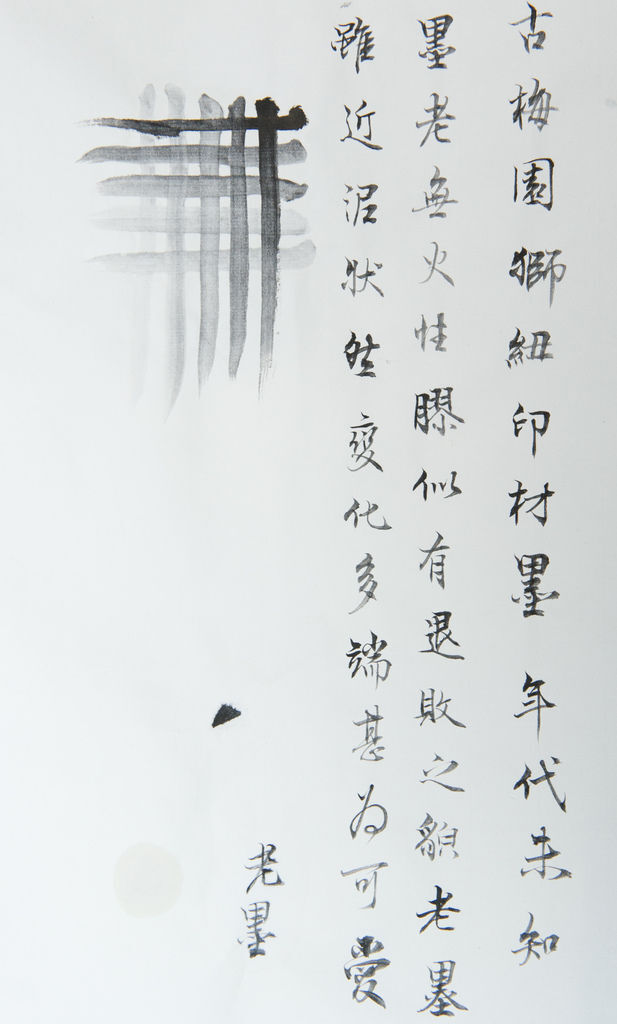 古梅園獅紐印材墨 年代未知
墨老無火性膠似有退敗之貌老墨
雖近泥狀然變化多端甚為可愛
老墨